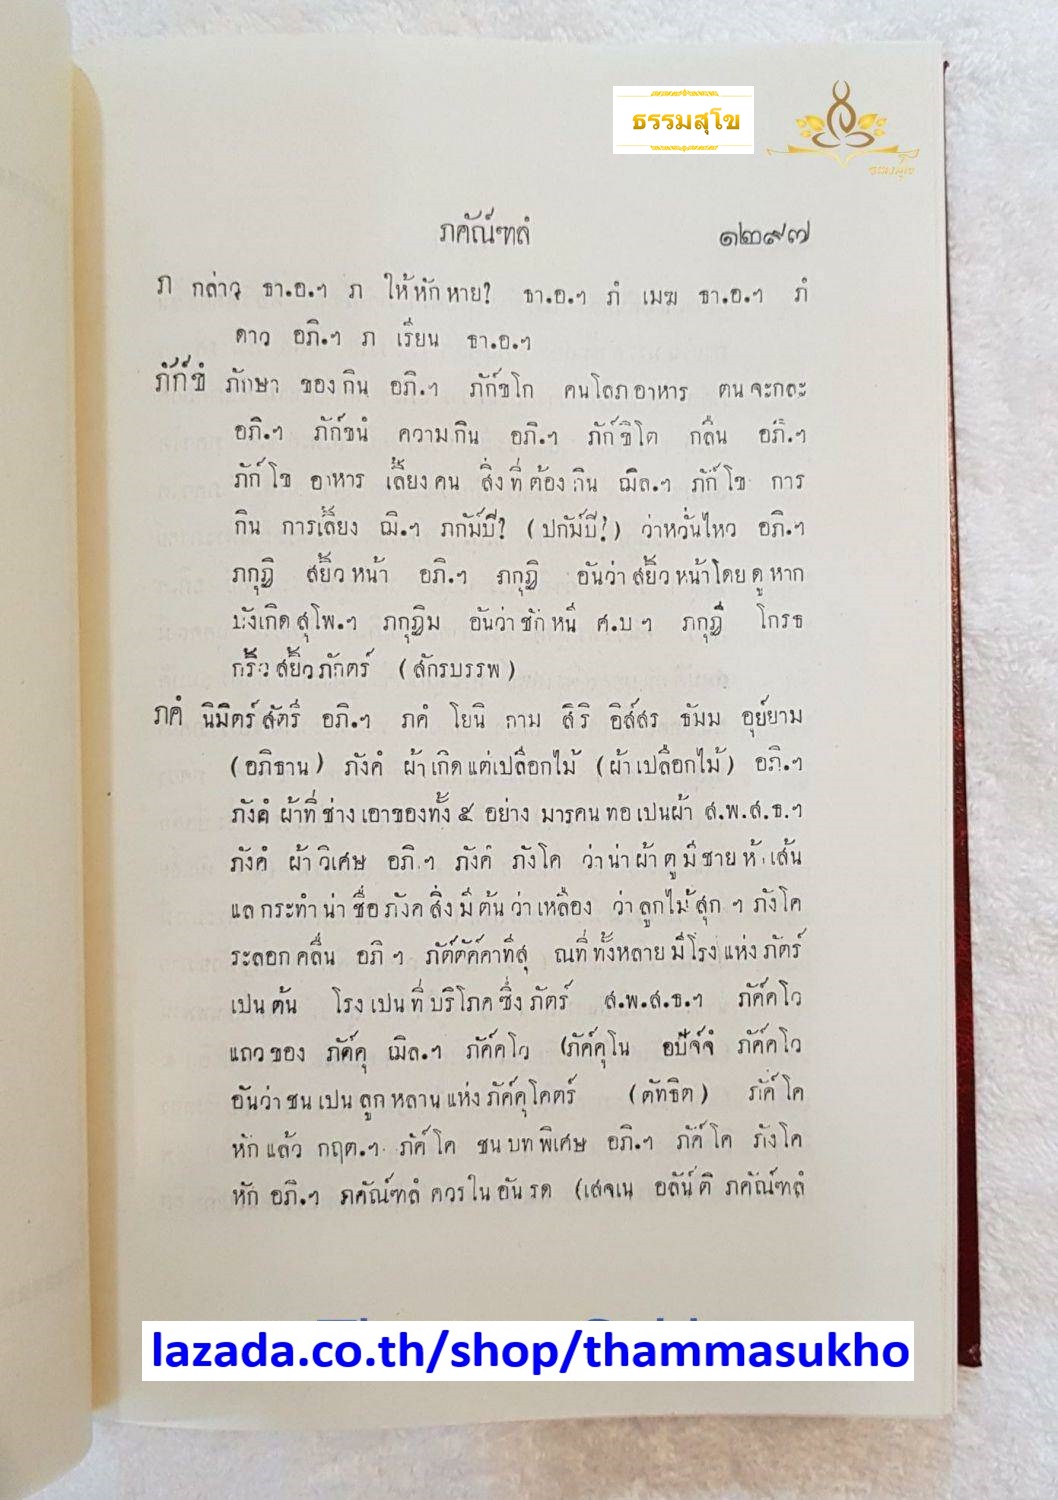 ธรรมสุโข
ธรรมสุโข
ภคัณ์ฑลํ ๑๒๙๗
ภ กล่าว ธา.อ.ฯ ภ ให้หักหาย? ธา.อ.ฯ ภํ เมฆ ธา.อ.ฯ ภํ
ดาว อภิ.ฯ ภ เรียน ธา.อ.ฯ
ภัก์ขํ ภักษา ของกิน อภิ.ฯ ภัก์ขโก คนโลภอาหาร ตนจะกละ
อภิ.ฯ ภัก์ขนํ ความกิน อภิ.ฯ ภัก์ขิโต กลืน อภิ.ฯ
ภัก์โข อาหาร เลี้ยงคน สิ่งที่ต้องกิน ฌิล.ฯ ภัก์โข การ
กิน การเลี้ยง ฌิ.ฯ ภกัม์บี? (ปกัม์บี?) ว่าหวั่นไหว อภิ.ฯ
ภกุฏิ สยิ้วหน้า อภิ.ฯ ภกุฏิ อันว่าสยิ้วหน้าโดยดูหาก
บังเกิด สุโพ.ฯ ภกุฏิม อันว่าชักหนี ศ.บฯ ภกุฏี โกรธ
กริ้ว สยิ้วภักตร์ (สักรบรรพ)
ภคํ นิมิตร์สัตรี อภิ.ฯ ภคํ โยนิ กาม สิริ อิส์สร ธัมม อุย์ยาม
(อภิธาน) ภังคํ ผ้าเกิดแต่เปลือกไม้ (ผ้าเปลือกไม้) อภิ.ฯ
ภังคํ ผ้าที่ช่างเอาของทั้ง ๕ อย่าง มารคนทอเปนผ้า ส.พ.ส.ธ.ฯ
ภังคํ ผ้าวิเศษ อภิ.ฯ ภังคํ ภังโค ว่าน่าผ้าตูมีชายห้าเส้น
แลกระทำน่า ชื่อภังคสิ่งมีต้นว่าเหลือง ว่าลูกไม้สุก ฯ ภังโค
ระลอกคลื่น อภิฯ ภัต์ตัค์คาทีสุ ณที่ทั้งหลายมีโรงแห่งภัตร์
เปนต้น โรงเปนที่บริโภคซึ่งภัตร์ ส.พ.ส.ธ.ฯ ภัค์คโว
แถวของ ภัค์คุ ฌิล.ฯ ภัค์คโว (ภัค์คุโน อปัจ์จํ ภัค์คโว
อันว่าชนเปนลูกหลานแห่งภัค์คุโคตร์ (ตัทธิต) ภัค์โค
หักแล้ว กฤต.ฯ ภัค์โค ชนบทพิเศษ อภิ.ฯ ภัค์โค ภังโค
หัก อภิ.ฯ ภคัณ์ฑลํ ควรในอันรด (เสจเน อลัน์ติ ภคัณ์ฑลํ
lazada.co.th/shop/thammasukho